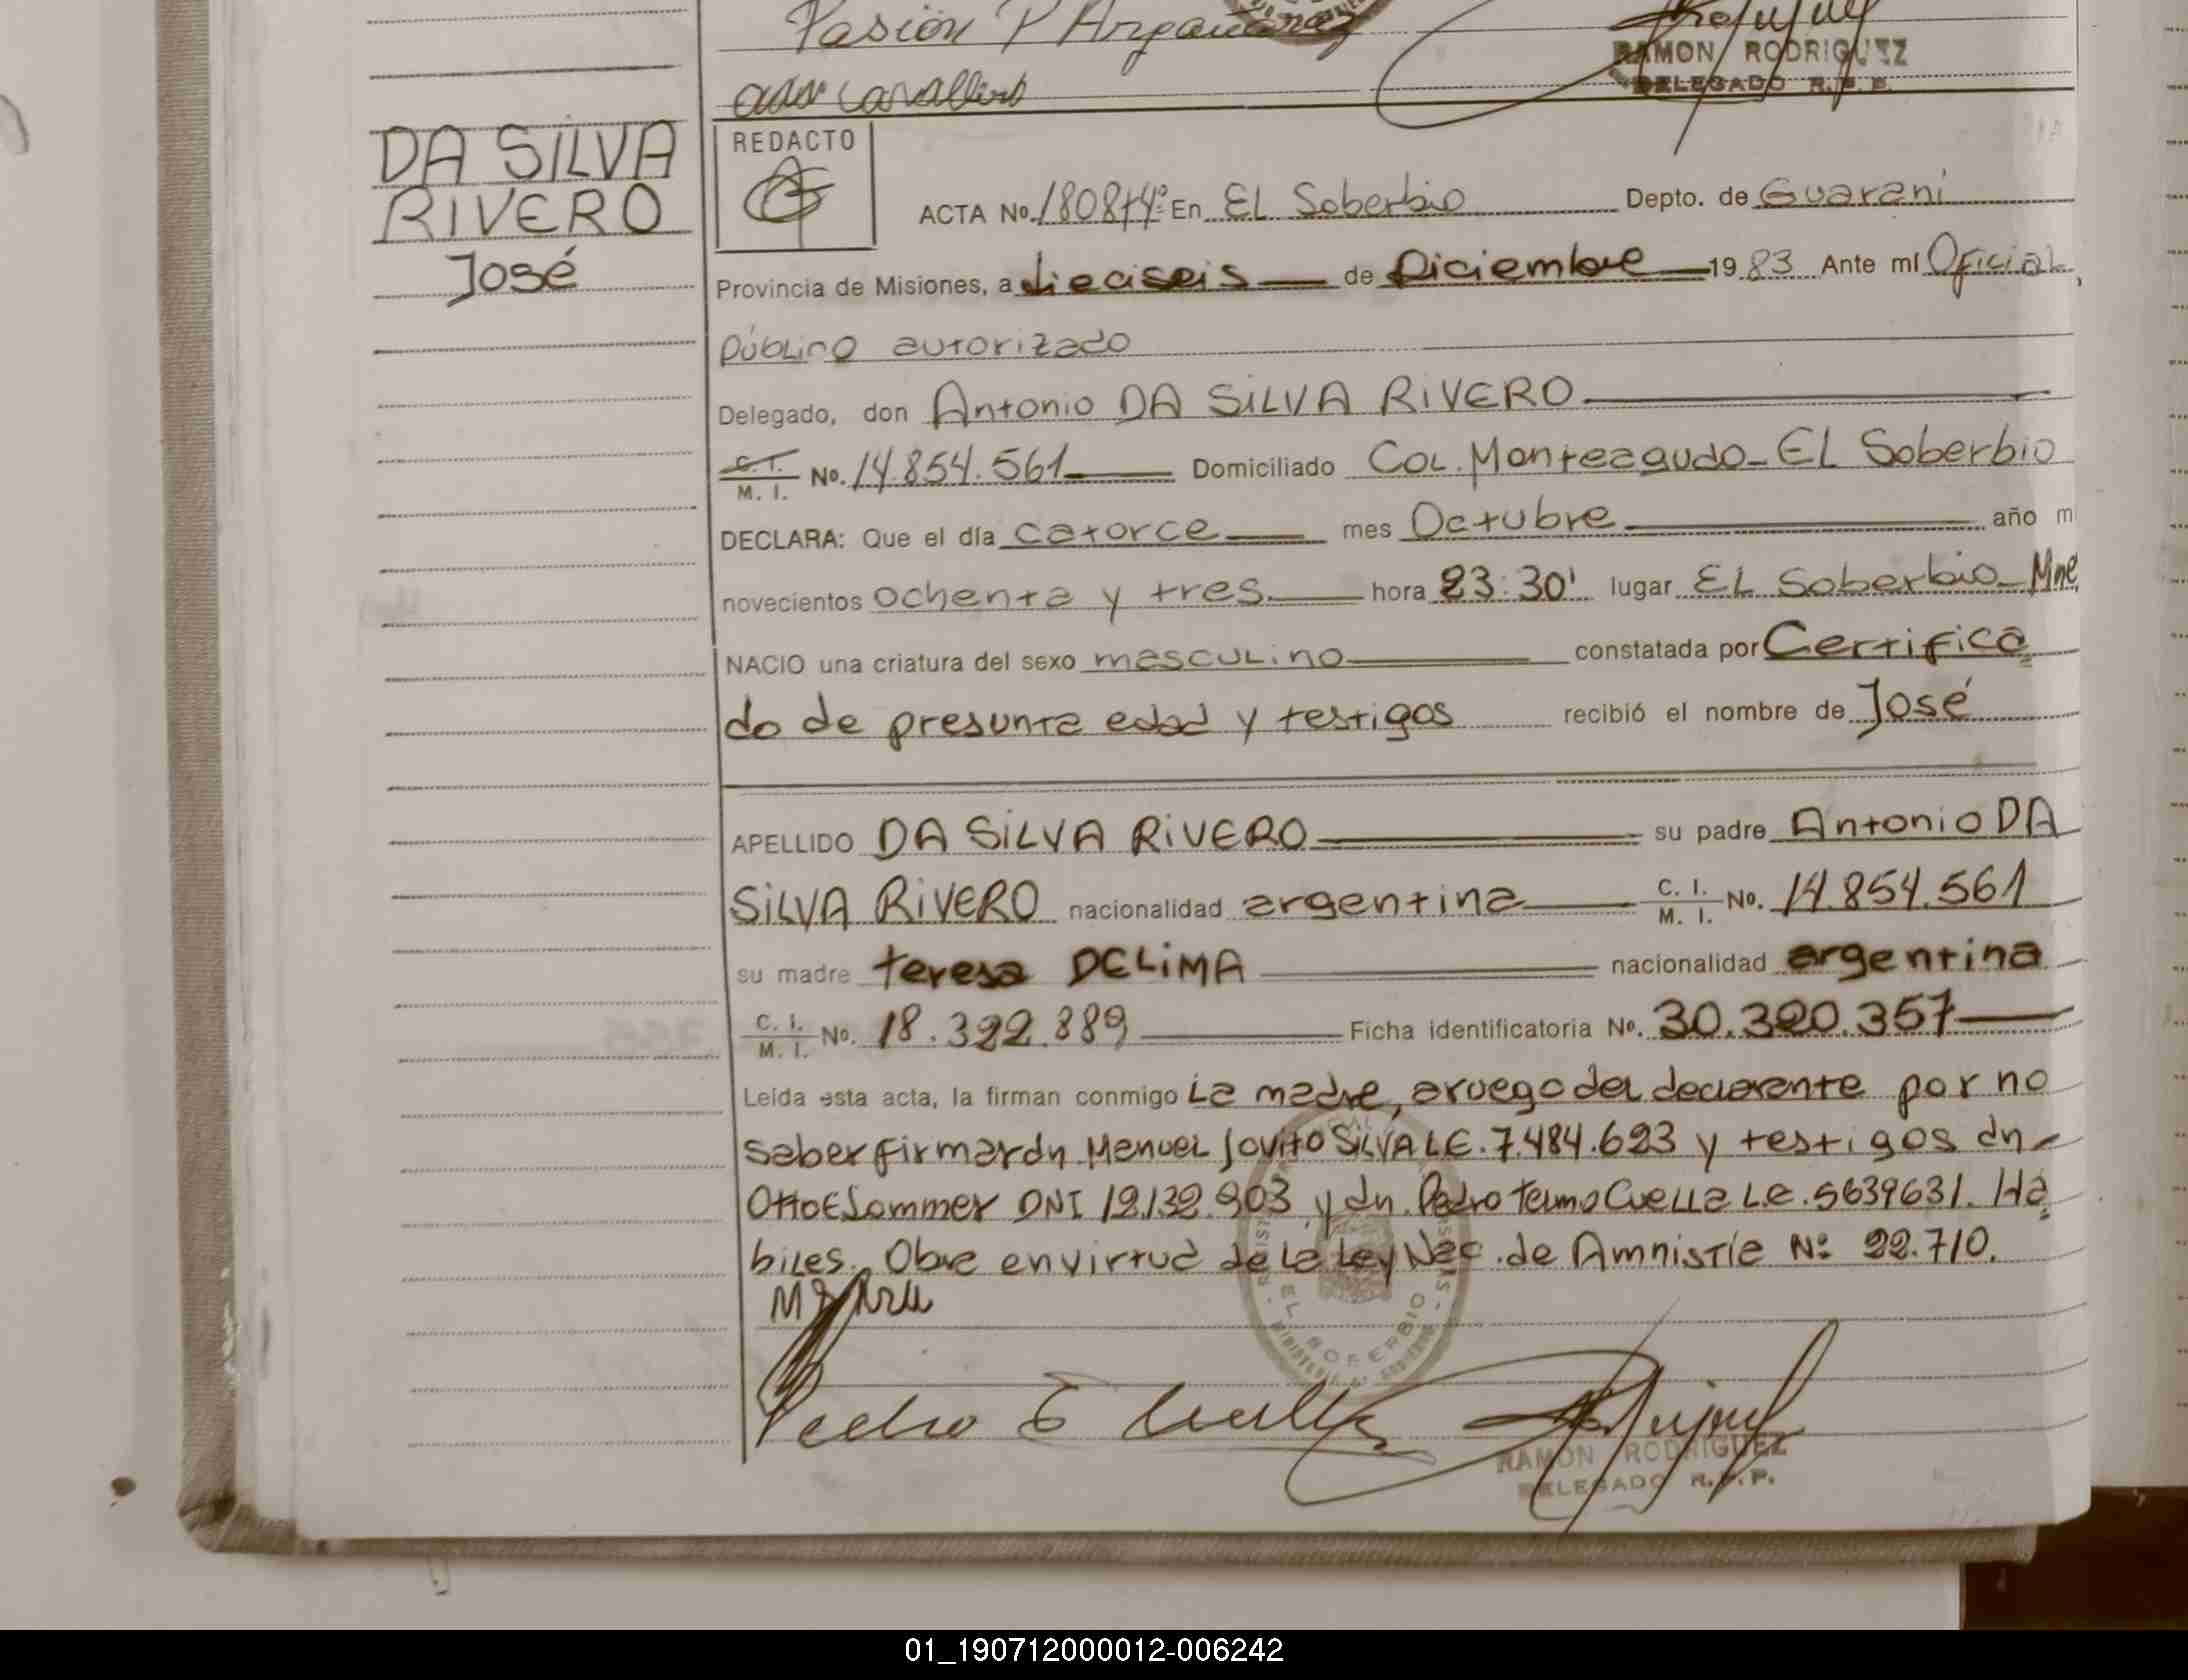 Pasión P Argañaraz
RAMON RODRIGUEZ
DELEGADO R.P.P.
DA SILVA
RIVERO
José
REDACTO
ACTA No. 1808 t4º En EL Soberbio Depto. de Guaraní
Provincia de Misiones, a dieciseis de Diciembre 1983 Ante mí Oficial
Público autorizado
Delegado, don Antonio DA SILVA RIVERO
C. I. / M. I. No. 14.854.561 Domiciliado Col. Monteagudo - EL Soberbio
DECLARA: Que el día catorce mes Octubre año m
novecientos ochenta y tres hora 23:30' lugar EL Soberbio - Mnes
NACIO una criatura del sexo masculino constatada por Certifica
do de presunta edad y testigos recibió el nombre de José
APELLIDO DA SILVA RIVERO su padre Antonio DA
SILVA RIVERO nacionalidad argentina C. I. / M. I. No. 14.854.561
su madre teresa DELIMA nacionalidad argentina
C. I. / M. I. No. 18.322.889 Ficha identificatoria No. 30.320.357
Leída esta acta, la firman conmigo La madre, aruego del declarante por no
saber firmar dn Manuel Jovito SILVA L.E. 7.484.623 y testigos dn
Otto E Sommer DNI 12.132.903 y dn. Pedro Telmo Cuella L.E. 5639631. Há
biles. Obre en virtud de la Ley Nac. de Amnistía Nº 22.710.
EL SOBERBIO
RAMON RODRIGUEZ
DELEGADO R.P.P.
01_190712000012-006242